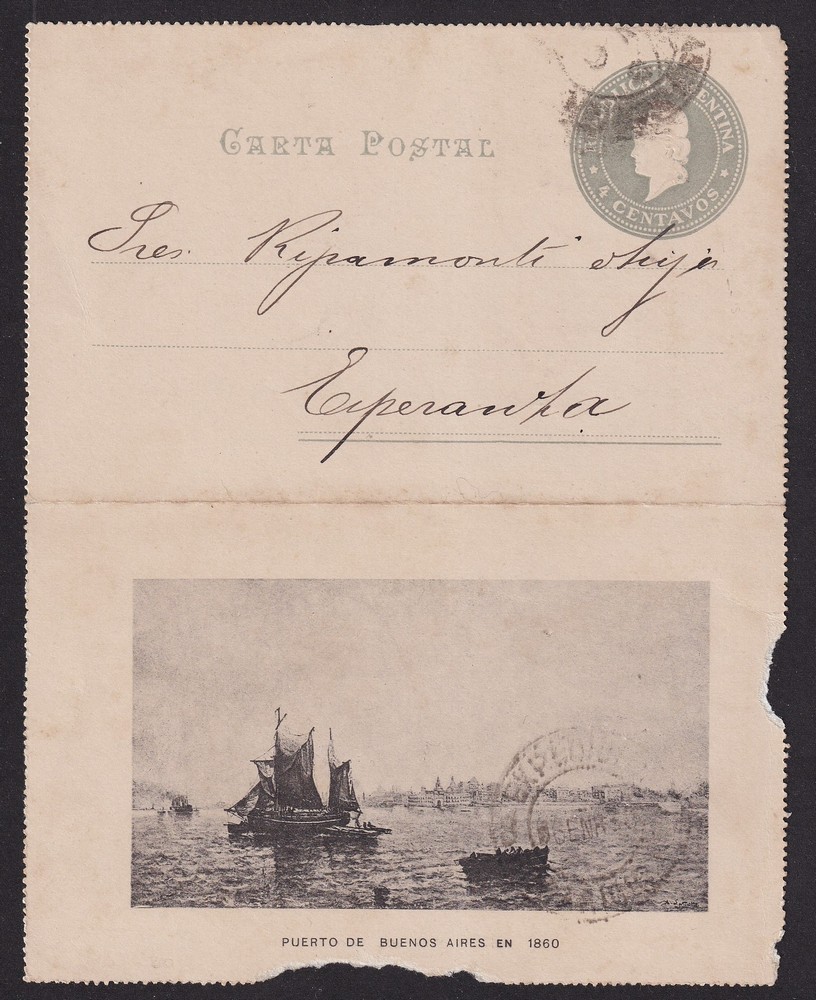 CARTA POSTAL
REPUBLICA ARGENTINA
4 CENTAVOS
Sres. Ripamonti é hijo
Esperanza
BUENOS
PUERTO DE BUENOS AIRES EN 1860